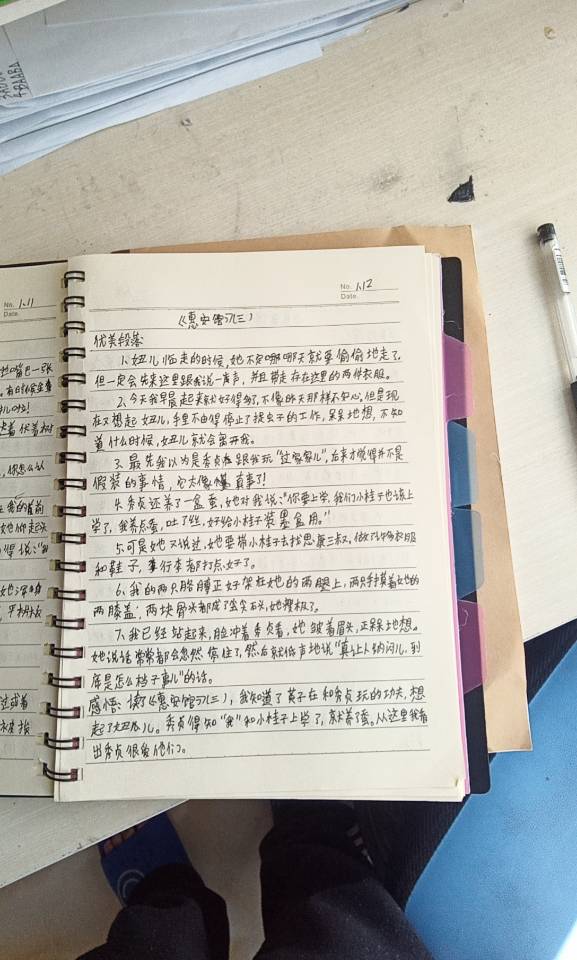 No. 1.11
Date.
No. 1.12
Date.
《惠安馆》(三)
优美段落:
1.妞儿临走的时候,她不知哪哪天就要偷偷地走了,
但一定会先来这里跟我说一声,并且带走存在这里的两件衣服。
2.今天我早晨起来就好得多了,不像昨天那样不安心,但是现
在又想起妞儿,手里不由得停止了捉虫子的工作,呆呆地想,不知
道什么时候,妞儿就会离开我。
3.最先我以为是秀贞跟我玩“过家家儿”,后来才觉得并不是
假装的事情,它太像真事了!
4.秀贞还养了一盒蚕,她对我说:“你要上学,我们小桂子也该上
学了,我养点蚕,吐了丝,好给小桂子装墨盒用。”
5.可是她又说过,她要带小桂子去找思康三叔,做了许多衣服
和鞋子,行李都打点好了。
6.我的两只胳膊正好架在她的两腿上,两只手按着她的
两膝盖,两块骨头都成了尖尖石头,她瘦极了。
7.我已经站起来,脸冲着秀贞看,她皱着眉头,正呆呆地想。
她说话常常都会忽然停住了,然后就低声地说“真让人纳闷儿,到
底是怎么档子事儿”的话。
感悟:读了《惠安馆》(三),我知道了英子在和秀贞玩的功夫,想
起了妞儿。秀贞得知“我”和小桂子上学了,就养了蚕。从这里我看
出秀贞很爱他们。